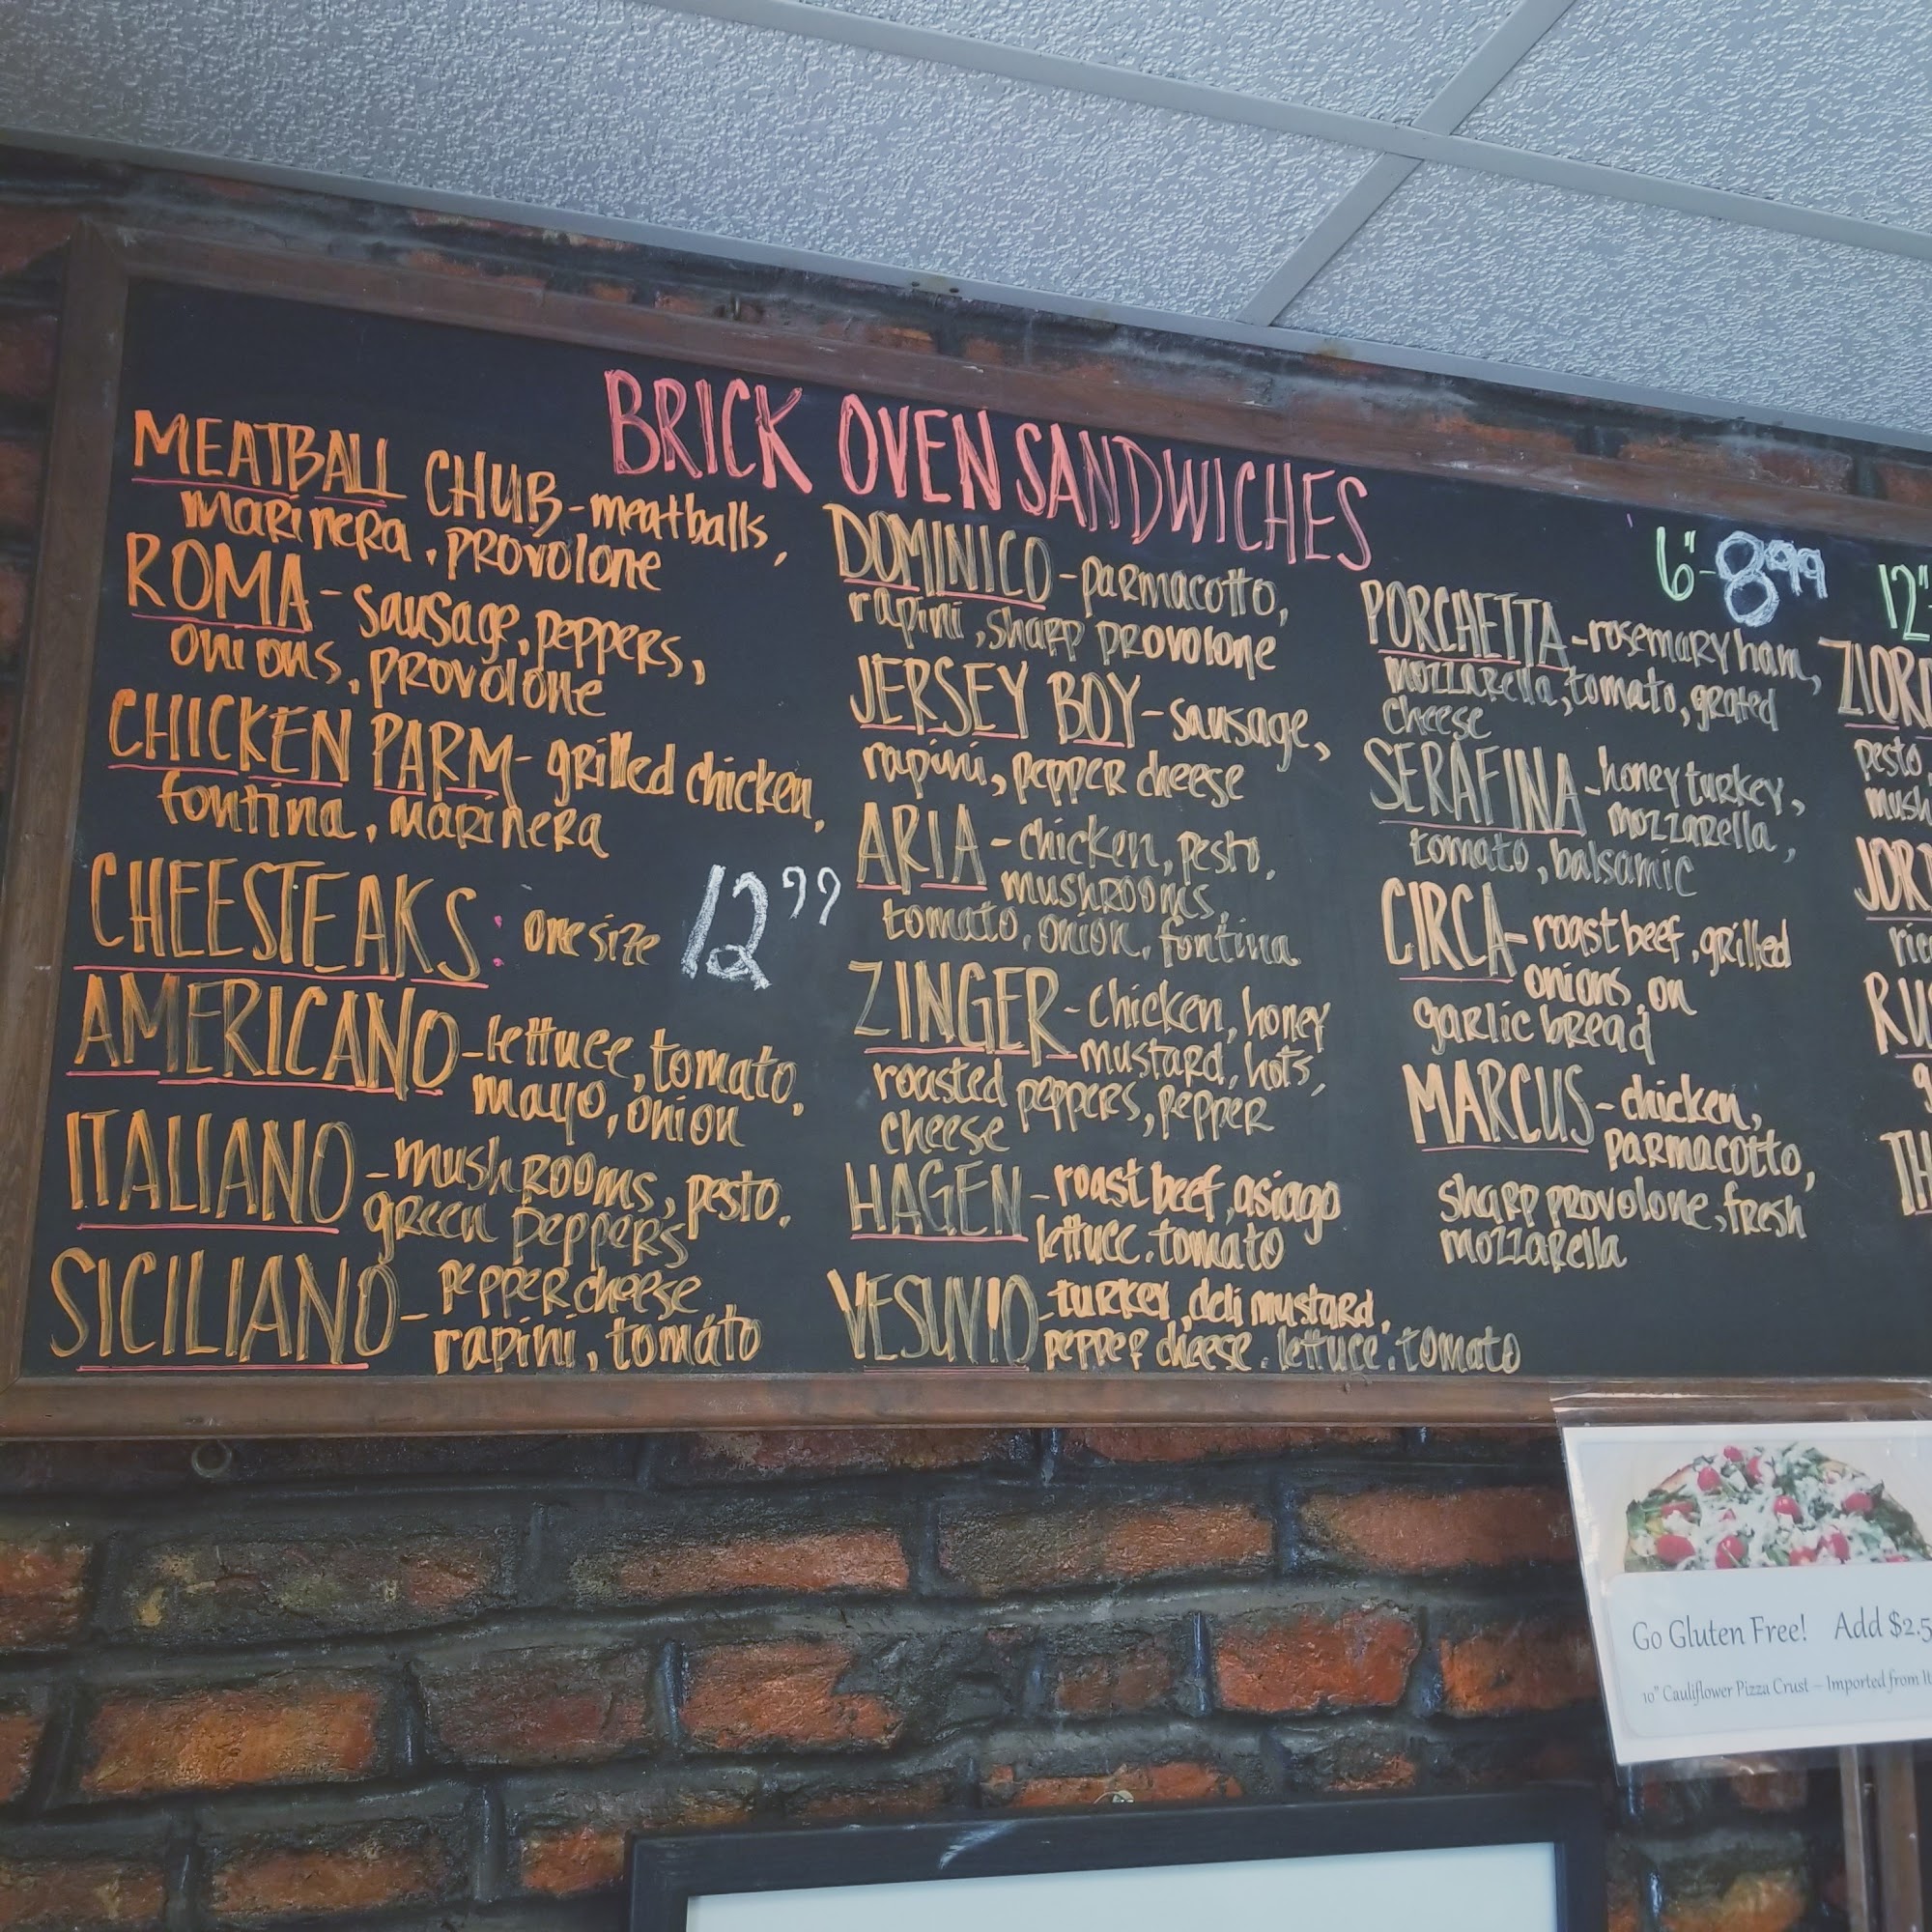 BRICK OVEN SANDWICHES
MEATBALL CHUB - meatballs,
marinera, provolone
ROMA - sausage, peppers,
onions, provolone
CHICKEN PARM - grilled chicken,
fontina, marinera
CHEESTEAKS: one size 12.99
AMERICANO - lettuce, tomato,
mayo, onion
ITALIANO - mushrooms, pesto,
green peppers
SICILIANO - pepper cheese
rapini, tomato
DOMINICO - parmacotto,
rapini, sharp provolone
JERSEY BOY - sausage,
rapini, pepper cheese
ARIA - chicken, pesto,
mushrooms,
tomato, onion, fontina
ZINGER - chicken, honey
mustard, hots,
roasted peppers, pepper
cheese
HAGEN - roast beef, asiago
lettuce, tomato
VESUVIO - turkey, deli mustard,
pepper cheese, lettuce, tomato
6" - 8.99
12"
PORCHETTA - rosemary ham,
mozzarella, tomato, grated
cheese
SERAFINA - honey turkey,
mozzarella,
tomato, balsamic
CIRCA - roast beef, grilled
onions, on
garlic bread
MARCUS - chicken,
parmacotto,
sharp provolone, fresh
mozzarella
pesto,
Go Gluten Free! Add $2.5
10" Cauliflower Pizza Crust - Imported from